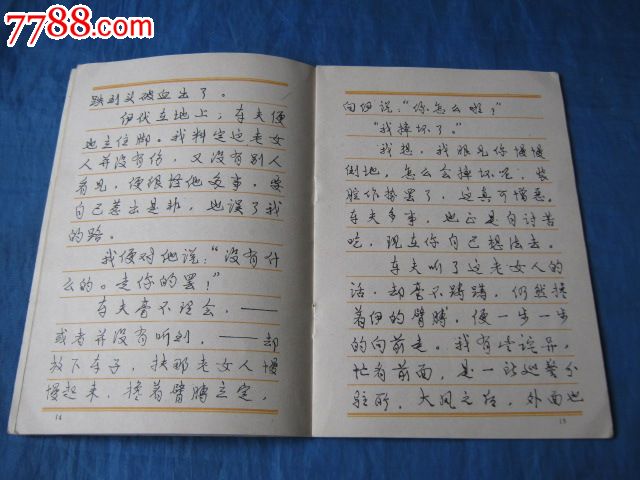 7788.com
跌到头破血出了。
伊伏在地上；车夫便
也立住脚。我料定这老女
人并没有伤，又没有别人
看见，便很怪他多事，要
自己惹出是非，也误了我
的路。
我便对他说：“没有什
么的。走你的罢！”
车夫毫不理会，——
或者并没有听到，——却
放下车子，扶那老女人慢
慢起来，搀着臂膊立定，
14
向伊说：“你怎么啦？”
“我摔坏了。”
我想，我眼见你慢慢
倒地，怎么会摔坏呢，装
腔作势罢了，这真可憎恶。
车夫多事，也正是自讨苦
吃，现在你自己想法去。
车夫听了这老女人的
话，却毫不踌躇，仍然搀
着伊的臂膊，便一步一步
的向前走。我有些诧异，
忙看前面，是一所巡警分
驻所，大风之后，外面也
15